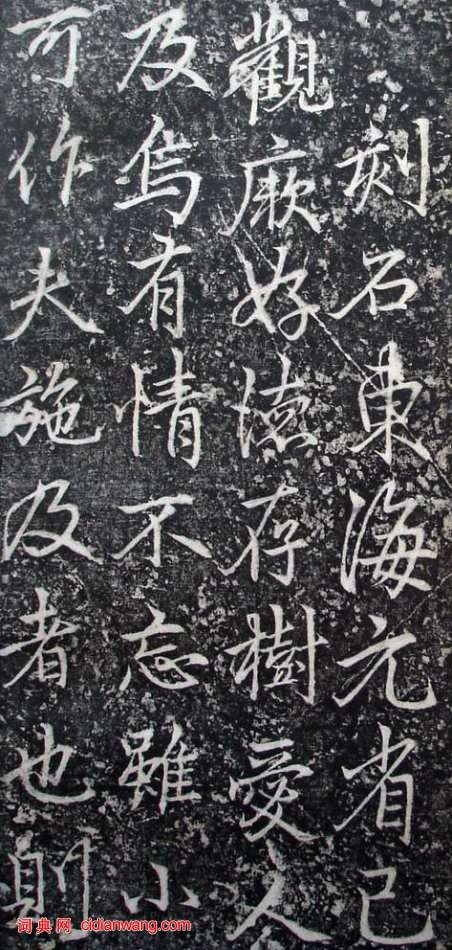 刻石東海元省己
觀厥好德存樹愛人
及烏有情不忘雖小
可作夫施及者也則
词典网 cidianwang.com